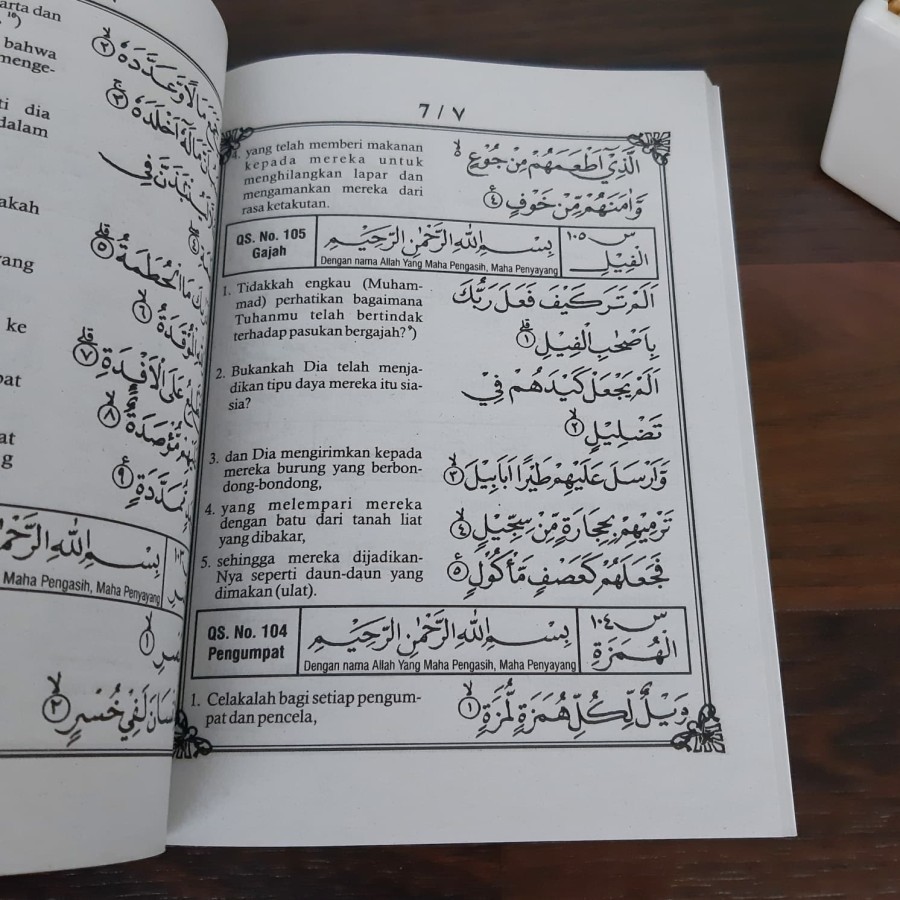 arta dan
bahwa
menge-
dia
dalam
akah
yang
ke
مَالًا وَّعَدَّدَهٗ ۙ ٢
مَالَهٗٓ اَخْلَدَهٗ ۚ ٣
فِى
مَا الْحُطَمَةُ ۗ ٥
الْمُوْقَدَةُ ۙ ٦
عَلَى الْاَفْـِٕدَةِ ۗ ٧
مُّؤْصَدَةٌ ۙ ٨
مُّمَدَّدَةٍ ۚ ٩
بِسْمِ اللّٰهِ
Maha Pengasih, Maha Penyayang
١٠٣
١
لَفِيْ خُسْرٍ ۙ ٢
7 / ٧
4. yang telah memberi makanan
kepada mereka untuk
menghilangkan lapar dan
mengamankan mereka dari
rasa ketakutan.
الَّذِيْٓ اَطْعَمَهُمْ مِّنْ جُوْعٍ ەۙ
وَّاٰمَنَهُمْ مِّنْ خَوْفٍ ٤
QS. No. 105
Gajah
بِسْمِ اللّٰهِ الرَّحْمٰنِ الرَّحِيْمِ
Dengan nama Allah Yang Maha Pengasih, Maha Penyayang
س ١٠٥
الْفِيْل
1. Tidakkah engkau (Muham-
mad) perhatikan bagaimana
Tuhanmu telah bertindak
terhadap pasukan bergajah? *)
اَلَمْ تَرَ كَيْفَ فَعَلَ رَبُّكَ
بِاَصْحٰبِ الْفِيْلِ ۗ ١
2. Bukankah Dia telah menja-
dikan tipu daya mereka itu sia-
sia?
اَلَمْ يَجْعَلْ كَيْدَهُمْ فِيْ
تَضْلِيْلٍ ۙ ٢
3. dan Dia mengirimkan kepada
mereka burung yang berbon-
dong-bondong,
وَّاَرْسَلَ عَلَيْهِمْ طَيْرًا اَبَابِيْلَ ۙ ٣
4. yang melempari mereka
dengan batu dari tanah liat
yang dibakar,
تَرْمِيْهِمْ بِحِجَارَةٍ مِّنْ سِجِّيْلٍ ۙ ٤
5. sehingga mereka dijadikan-
Nya seperti daun-daun yang
dimakan (ulat).
فَجَعَلَهُمْ كَعَصْفٍ مَّأْكُوْلٍ ٥
QS. No. 104
Pengumpat
بِسْمِ اللّٰهِ الرَّحْمٰنِ الرَّحِيْمِ
Dengan nama Allah Yang Maha Pengasih, Maha Penyayang
س ١٠٤
الْهُمَزَةِ
1. Celakalah bagi setiap pengum-
pat dan pencela,
وَيْلٌ لِّكُلِّ هُمَزَةٍ لُّمَزَةٍ ۙ ١